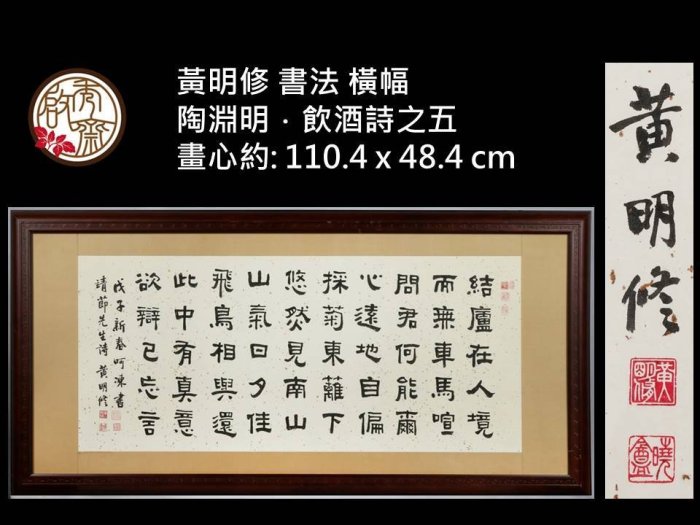 啟秀齋
黃明修 書法 橫幅
陶淵明．飲酒詩之五
畫心約: 110.4 x 48.4 cm
結廬在人境
而無車馬喧
問君何能爾
心遠地自偏
採菊東籬下
悠然見南山
山氣日夕佳
飛鳥相與還
此中有真意
欲辯已忘言
戊子新春呵凍書
靖節先生詩 黃明修
黃明修
黃明修
曉盦